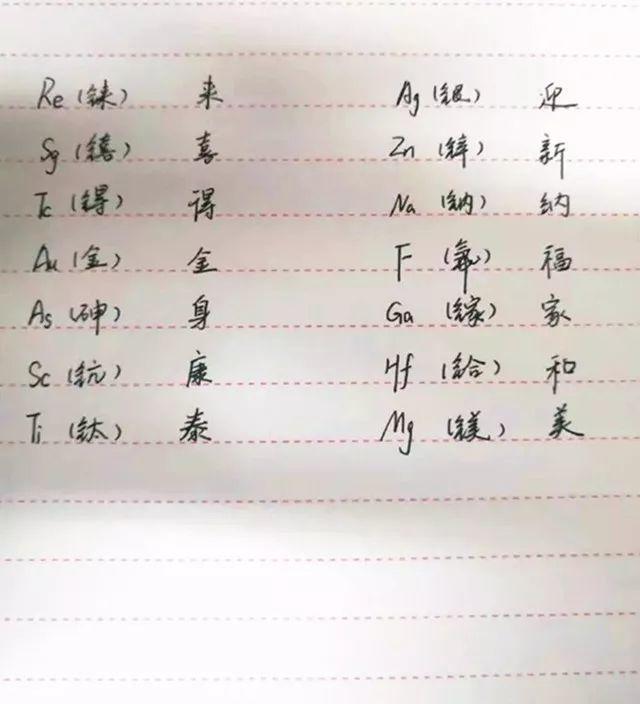 Re (铼) 来
Sg (𬭳) 喜
Tc (锝) 得
Au (金) 金
As (砷) 身
Sc (钪) 康
Ti (钛) 泰
Ag (银) 迎
Zn (锌) 新
Na (钠) 纳
F (氟) 福
Ga (镓) 家
Hf (铪) 和
Mg (镁) 美